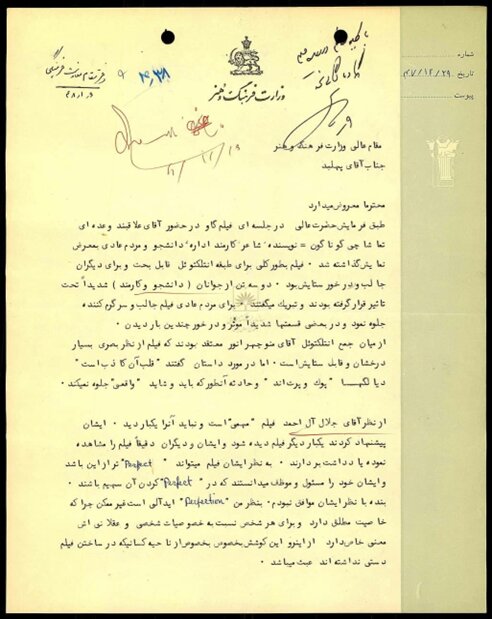 شماره
تاریخ ۴۷/۱۲/۲۹
پیوست
وزارت فرهنگ و هنر
مقام عالی وزارت فرهنگ و هنر
جناب آقای پهلبد
محترما معروض میدارد
طبق فرمایش حضرتعالی در جلسه ای فیلم گاو در حضور آقای علاقبند وعده ای
تماشاچی گوناگون = نویسنده، شاعر کارمند اداره، دانشجو و مردم عادی بمعرض
نمایش گذاشته شد . فیلم بطور کلی برای طبقه انتلکتوئل قابل بحث و برای دیگران
جالب و در خور ستایش بود . دو سه تن از جوانان ( دانشجو و کارمند ) شدیداً تحت
تاثیر قرار گرفته بودند و تبریک میگفتند . برای مردم عادی فیلم جالب و سرگرم کننده
جلوه نمود و در بعضی قسمتها شدیداً موثر و در خور چندین بار دیدن .
از میان جمع انتلکتوئل آقای منوچهر انور معتقد بودند که فیلم از نظر بصری بسیار
درخشان و قابل ستایش است . اما در مورد داستان گفتند "قلب آن کاذب است"
دیالگهسا "پوک و پرت اند" و حادثه آنطور که باید و شاید "واقعی" جلوه نمیکند .
از نظر آقای جلال آل احمد فیلم "مهمی" است و نباید آنرا یکبار دید . ایشان
پیشنهاد کردند یکبار دیگر فیلم دیده شود و ایشان و دیگران دقیقاً فیلم را مشاهده
نموده یادداشت بردارند . به نظر ایشان فیلم میتواند "Perfect" تر از این باشد
و ایشان خود را مسئول و موظف میدانستند که در "Perfect" کردن آن سهیم باشند .
بنده با ایشان موافق نبودم . بنظر من "Perfection" ایدآلی است غیر ممکن چرا که
خاصیت مطلق دارد و برای هر شخص نسبت به خصوصیات شخصی و عقلانی اش
معنی خاص دارد از اینرو این کوشش بخصوص بخصوص از ناحیه کسانیکه در ساختن فیلم
دستی نداشته اند عبث میباشد .